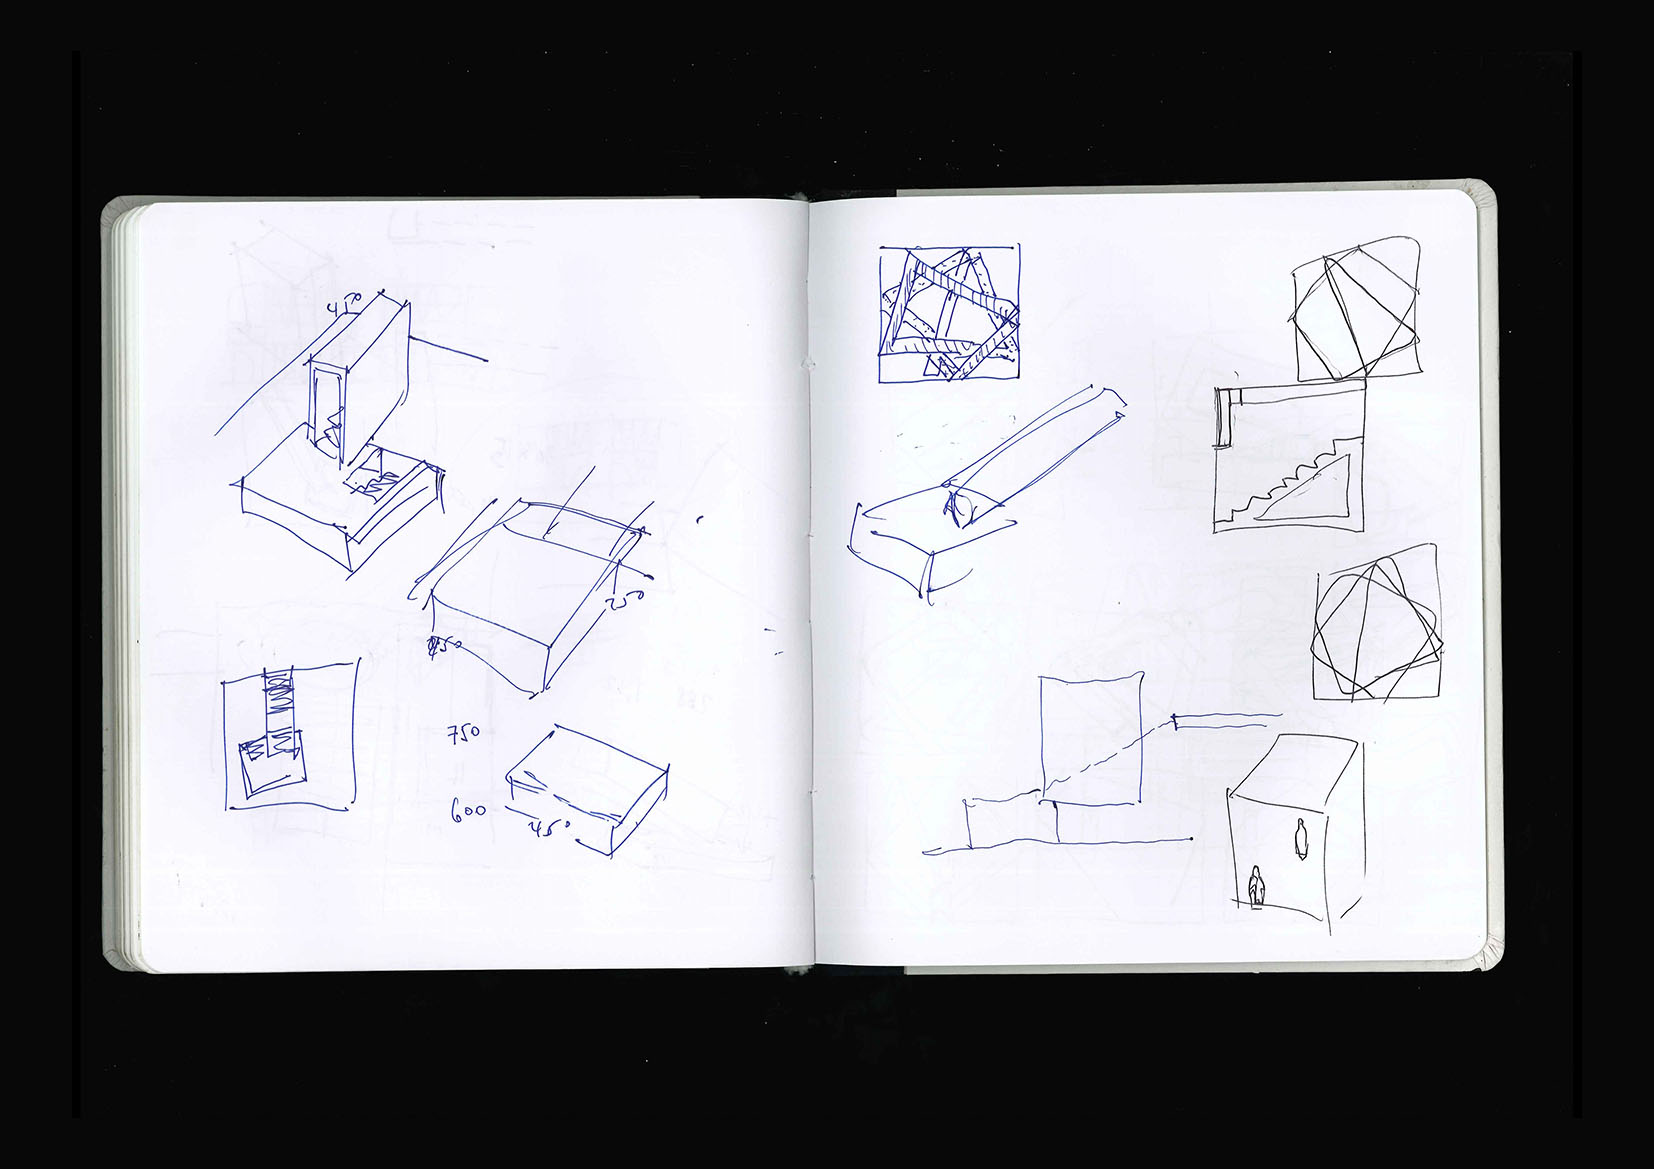 450
250
450
750
600
450